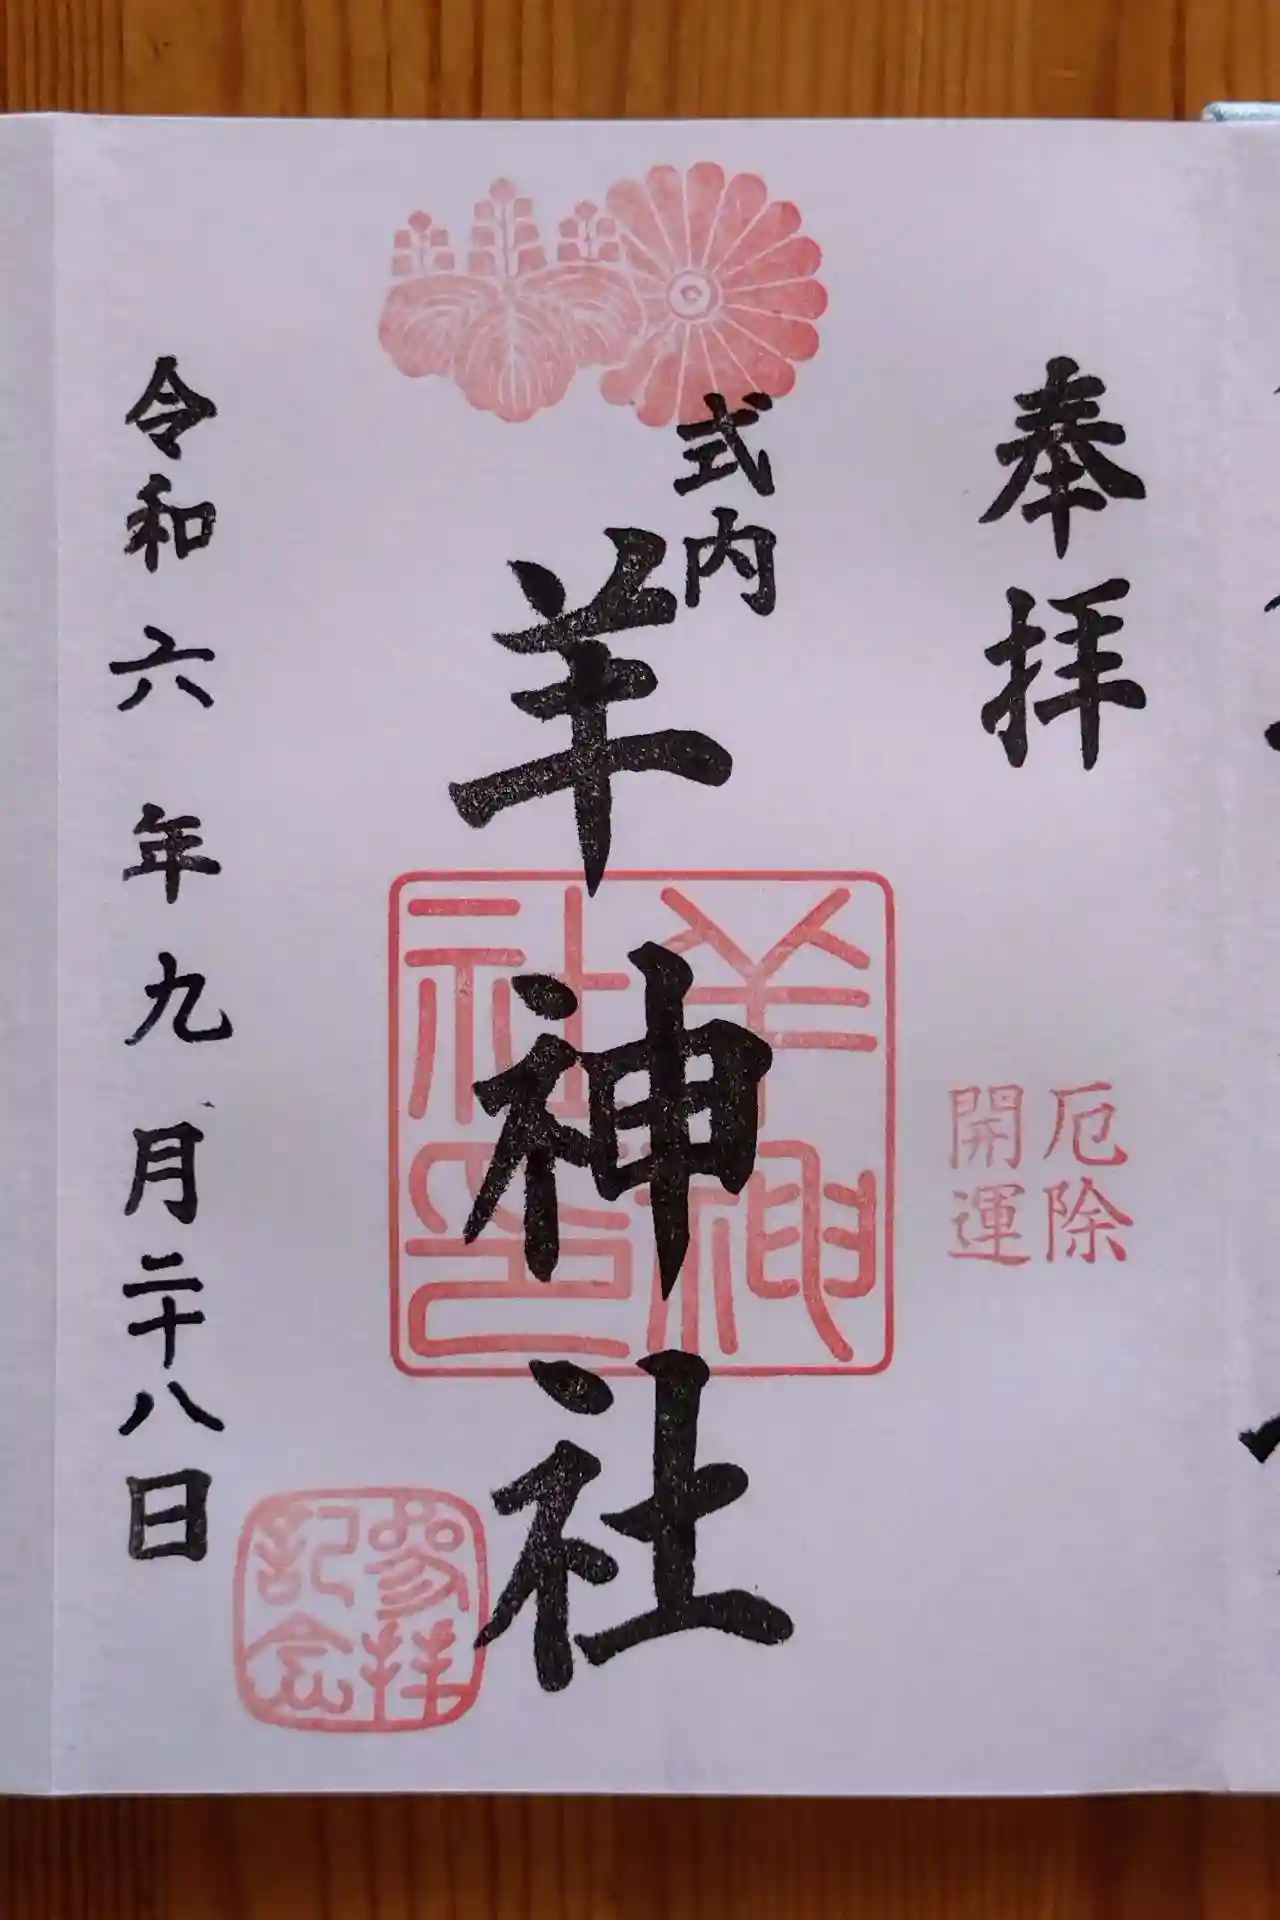 奉拝
厄除
開運
式内
羊神社
羊神社印
令和六年九月二十八日
参拝
記念